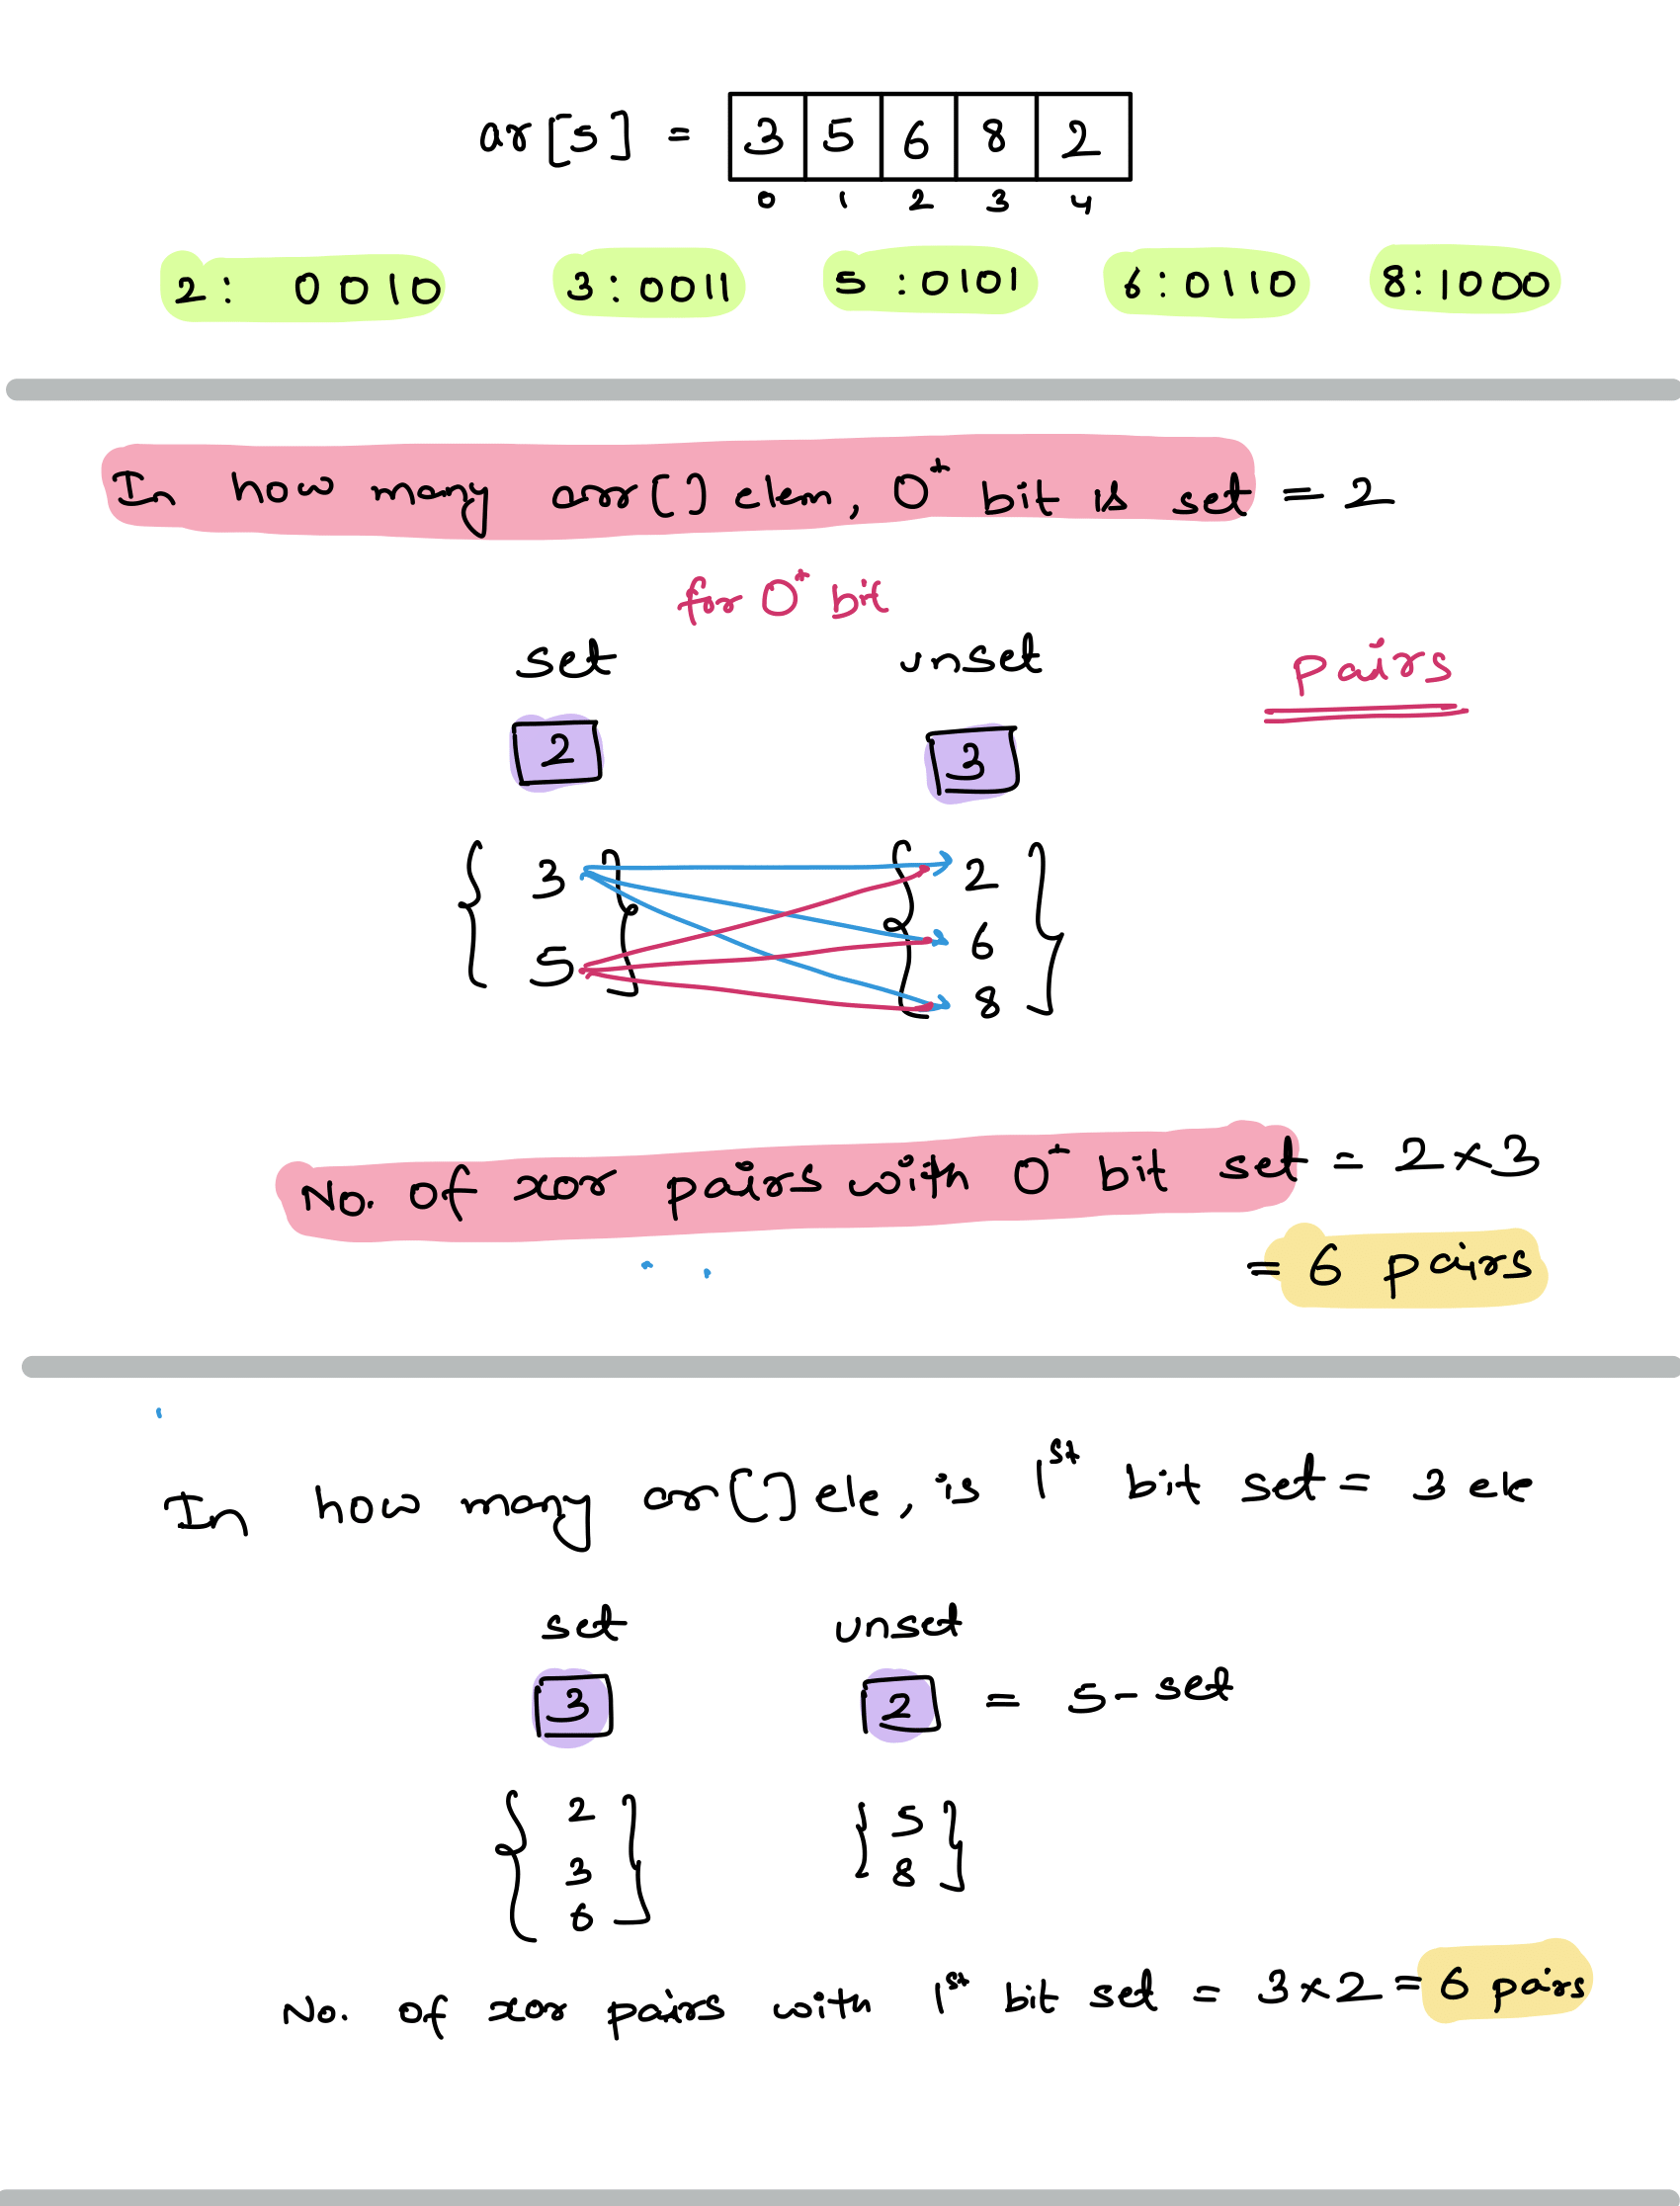 ar[5] = 3 5 6 8 2
0 1 2 3 4
2: 0010 3:0011 5:0101 6:0110 8:1000
In how many arr[] elem, 0th bit is set = 2
for 0th bit
set unset pairs
2 3
{ 3 } { 2 }
5 6
8
No. of xor pairs with 0th bit set = 2×3
= 6 pairs
In how many arr[] ele, is 1st bit set = 3 ele
set unset
3 2 = 5 - set
{ 2 } { 5 }
3 8
6
No. of xor pairs with 1st bit set = 3×2 = 6 pairs